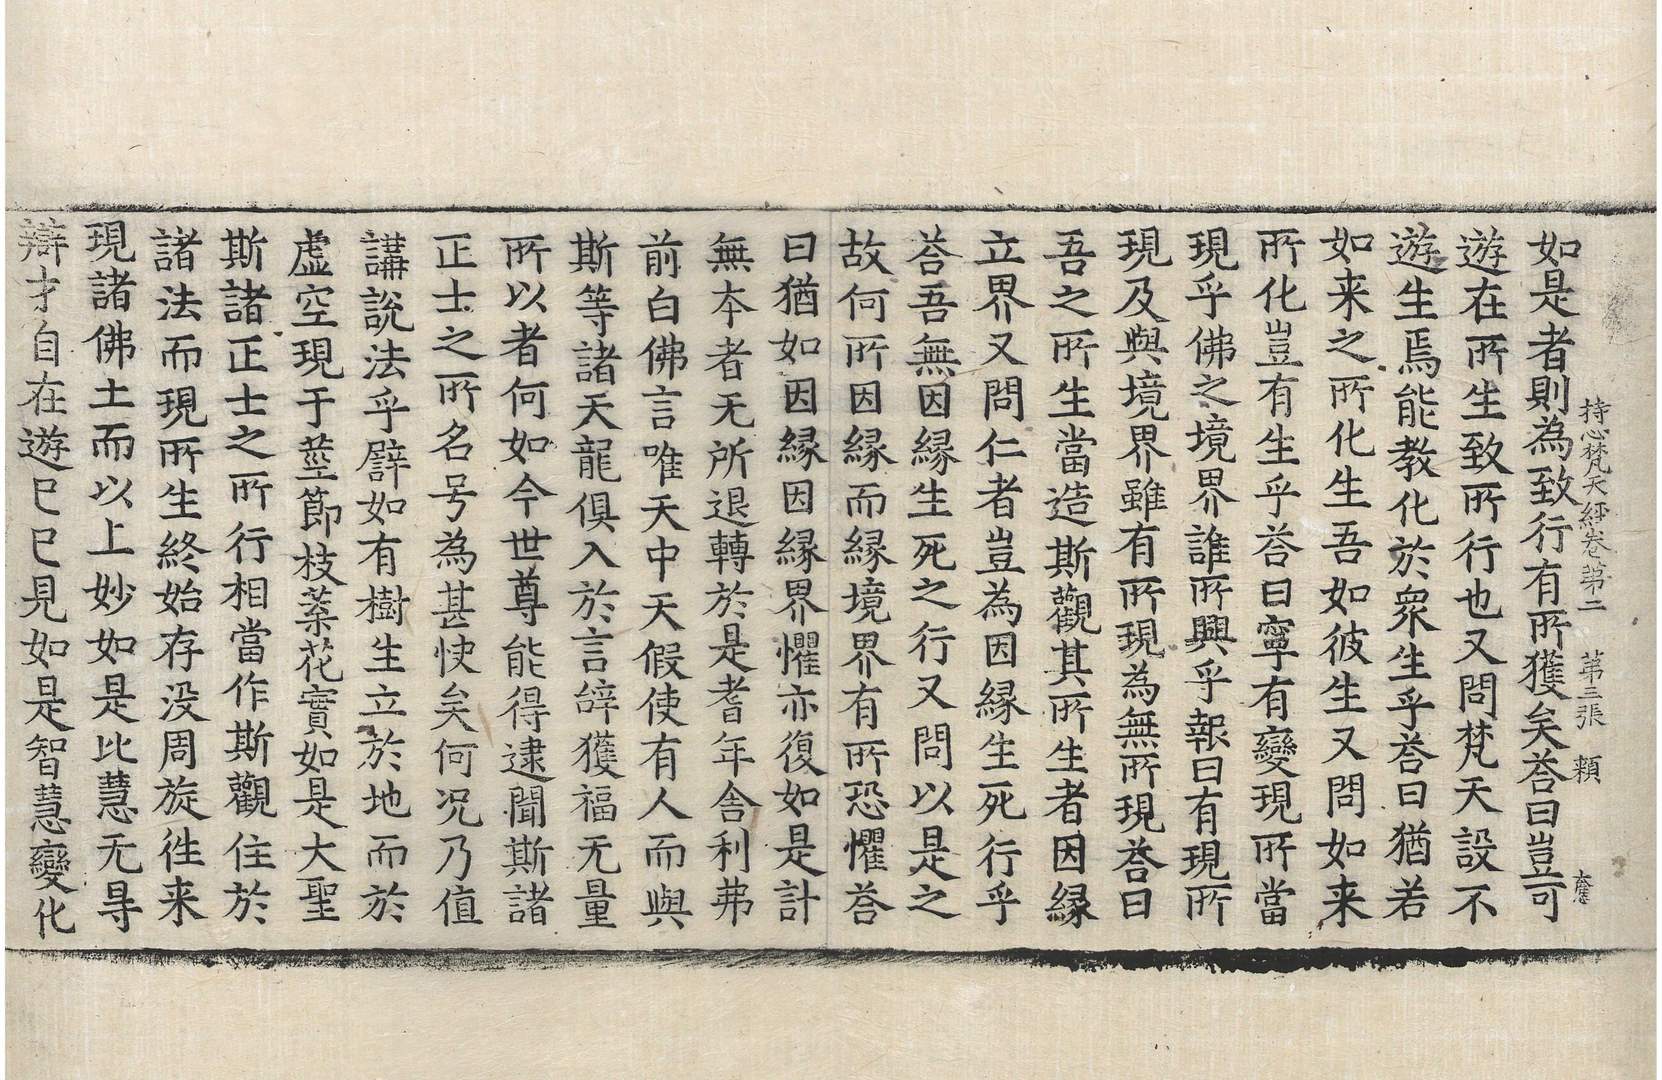 持心梵天經卷第二 第三張 頼
如是者則為致行有所獲矣荅曰豈可
遊在所生致所行也又問梵天設不
遊生焉能教化於衆生乎荅曰猶若
如来之所化生吾如彼生又問如来
所化豈有生乎荅曰寧有變現所當
現乎佛之境界誰所興乎報曰有現所
現及與境界雖有所現為無所現荅曰
吾之所生當造斯觀其所生者因縁
立界又問仁者豈為因縁生死行乎
荅吾無因縁生死之行又問以是之
故何所因縁而縁境界有所恐懼荅
曰猶如因縁因縁界懼亦復如是計
無本者无所退轉於是耆年舍利弗
前白佛言唯天中天假使有人而與
斯等諸天龍俱入於言辝獲福无量
所以者何如今世尊能得逮聞斯諸
正士之所名号為甚快矣何况乃值
講説法乎譬如有樹生立於地而於
虚空現于莖節枝葉花實如是大聖
斯諸正士之所行相當作斯觀住於
諸法而現所生終始存没周旋徃来
現諸佛土而以上妙如是比慧无㝵
辯才自在遊已已見如是智慧變化